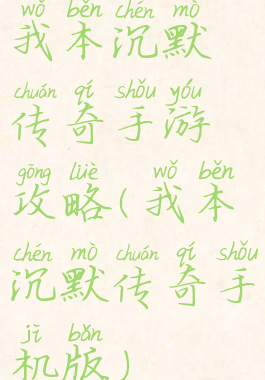 wǒ běn chén mò
我本沉默
chuán qí shǒu yóu
传奇手游
gōng lüè wǒ běn
攻略(我本
chén mò chuán qí shǒu
沉默传奇手
jī bǎn
机版)